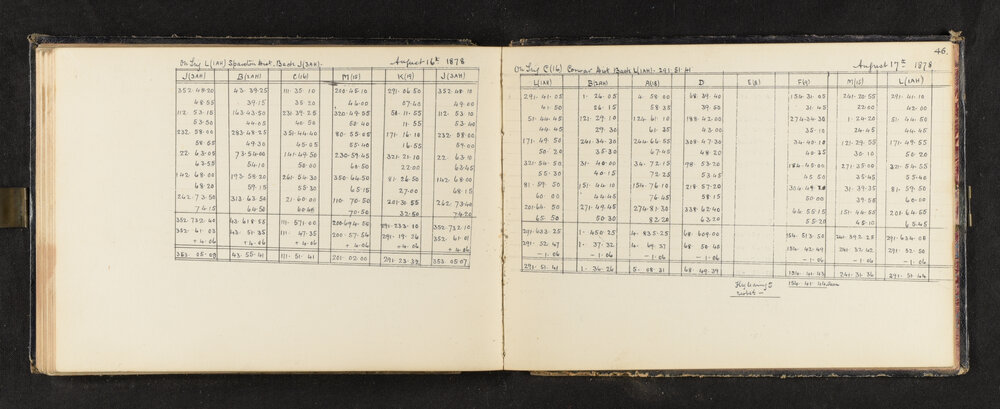 On Trig L (1AH) Spaxton Hut. Back J (3AH). August 16th 1878
J (3AH) B (2AH) C (16) M (15) K (19) J (3AH)
352.48.20 43.39.25 111.35.10 200.45.10 291.06.50 352.48.10
48.55 39.15 35.20 46.00 07.40 49.00
112.53.15 163.43.50 231.39.25 320.49.05 50.11.55 112.53.10
53.50 44.05 40.50 50.40 11.55 53.40
232.58.00 283.48.25 351.44.40 80.55.05 171.16.10 232.58.00
58.55 49.30 45.05 55.40 16.55 59.00
22.63.05 73.54.00 141.49.50 230.59.45 321.21.10 22.63.10
63.55 54.10 50.00 60.50 22.00 63.45
142.68.00 193.59.20 261.54.30 350.64.50 81.26.50 142.68.00
68.20 59.15 55.30 65.15 27.00 68.15
262.73.50 313.63.50 21.60.00 110.70.50 201.30.55 262.73.40
74.15 64.50 60.45 70.50 32.50 74.20
352.732.40 43.618.55 111.571.00 200.694.50 291.233.10 352.732.10
352.61.03 43.51.35 111.47.35 200.57.54 291.19.26 352.61.01
+4.06 +4.06 +4.06 +4.06 +4.06 +4.06
353.05.09 43.55.41 111.51.41 201.02.00 291.23.32 353.05.07
46.
On Trig C (16) Hut Back L (1AH). 291.51.41 August 17th 1878
L (1AH) B (2AH) A (8) D E (8) F (9) M (15) L (1AH)
291.41.05 1.26.05 4.58.00 68.39.40 154.31.05 241.20.55 291.41.10
41.50 26.15 58.35 39.50 31.45 22.00 42.00
51.44.45 121.29.10 124.61.10 188.42.00 274.34.30 1.24.20 51.44.50
44.45 29.30 61.35 43.00 35.10 24.45 44.45
171.49.50 241.34.30 244.66.55 308.47.30 34.40.10 121.29.55 171.49.55
50.20 35.30 67.45 48.20 40.35 30.10 50.20
321.54.50 31.40.00 34.72.15 98.53.20 184.45.00 271.35.00 321.54.55
55.30 40.15 72.25 53.45 45.50 35.45 55.40
81.59.50 151.44.10 154.76.10 218.57.20 304.49.20 31.39.35 81.59.50
60.00 44.45 76.45 58.15 50.00 39.55 60.00
201.64.50 271.49.45 274.81.30 338.62.40 64.55.15 151.44.55 201.64.55
65.50 50.30 82.20 63.20 55.20 45.10 65.45
291.633.25 1.450.25 4.835.25 68.609.00 154.513.50 241.392.25 291.634.05
291.52.47 1.37.32 4.69.37 68.50.45 154.42.49 241.32.42 291.52.50
-1.06 -1.06 -1.06 -1.06 -1.06 -1.06 -1.06
291.51.41 1.36.26 5.08.31 68.49.39 154.41.43 241.31.36 291.51.44
154.41.44